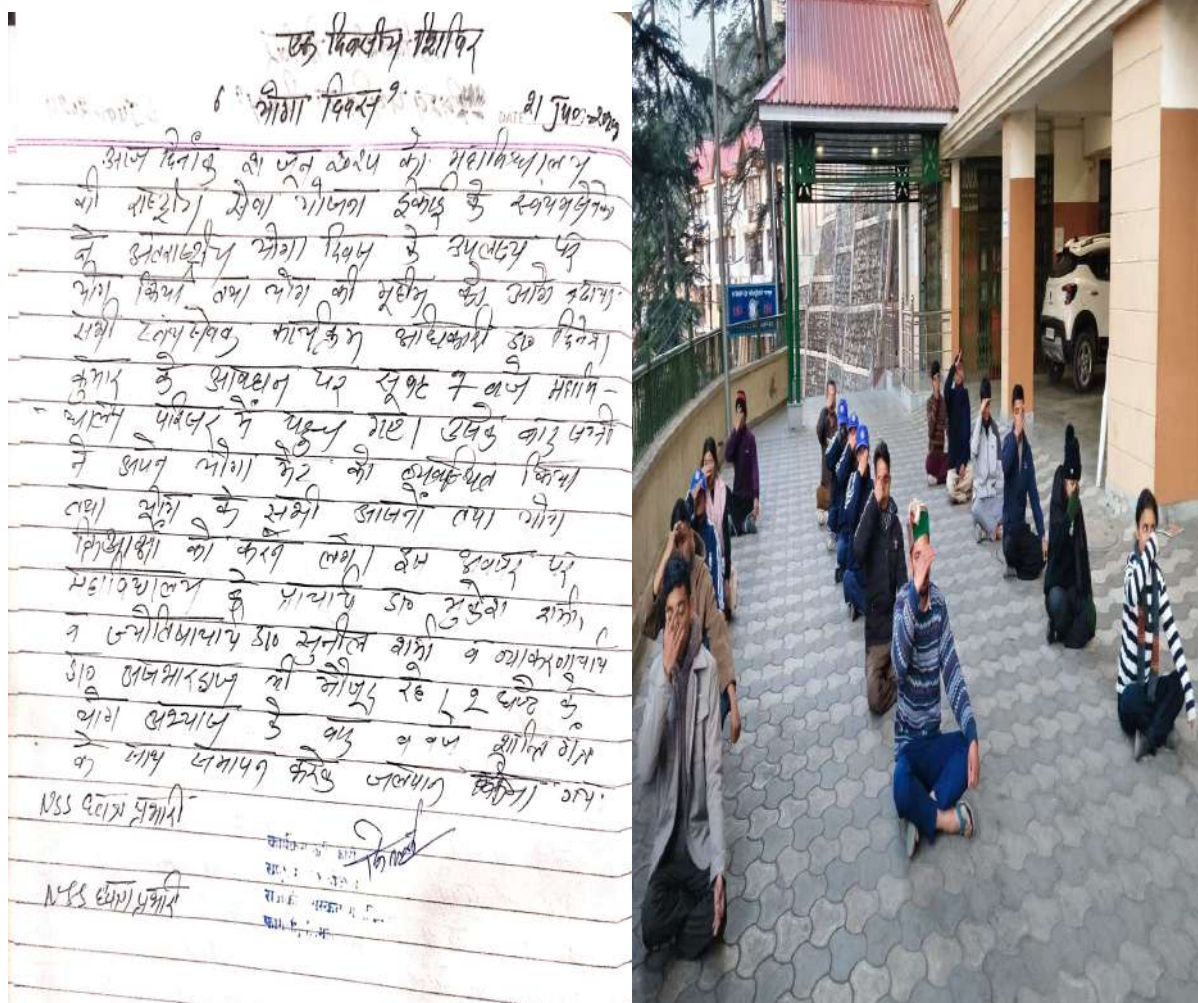 एक दिवसीय शिविर
योगा दिवस
21 Jun
आज दिनांक 21 जून को महाविद्यालय
की राष्ट्रीय सेवा योजना ईकाई के
ने योगा दिवस के उपलक्ष्य पर
योग किया तथा योग की मूहीम को आगे बढाया
सभी स्वंयसेवक कार्यक्रम अधिकारी डा० दिनेश
कुमार के पर सूबह 7 बजे महावि-
परिसर में पहुच गए। उसके बाद सभी
ने अपने योगा मैट को व्यवस्थित किया
तथा योग के सभी आसनों तथा योग
को करने लगे। इस अवसर पर
महाविद्यालय के प्राचार्य डा० मुकेश शर्मा,
व ज्योतिषाचार्य डा० सुनील शर्मा व व्याकरणाचार्य
डा० भी मौजूद रहे। 2 घण्टे के
योग अभ्यास के बाद बजे शान्ति मंत्र
के साथ समापन करके जलपान किया गया
NSS छात्र प्रभारी
NSS छात्रा प्रभारी